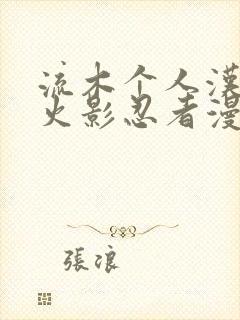 流木个人漢
火影忍者漫
張浪